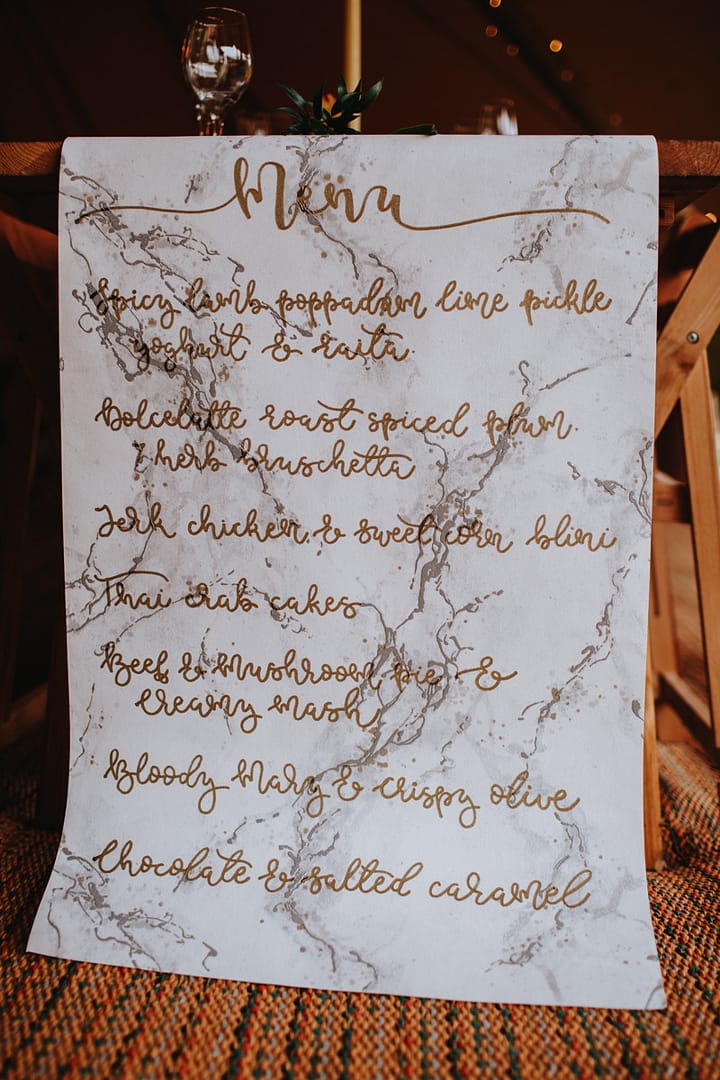 Menu
Spicy lamb poppadum lime pickle
yoghurt & raita
Dolcelatte roast spiced plum
& herb bruschetta
Jerk chicken & sweet corn blini
Thai crab cakes
Beef & mushroom pie &
creamy mash
Bloody Mary & crispy olive
Chocolate & salted caramel